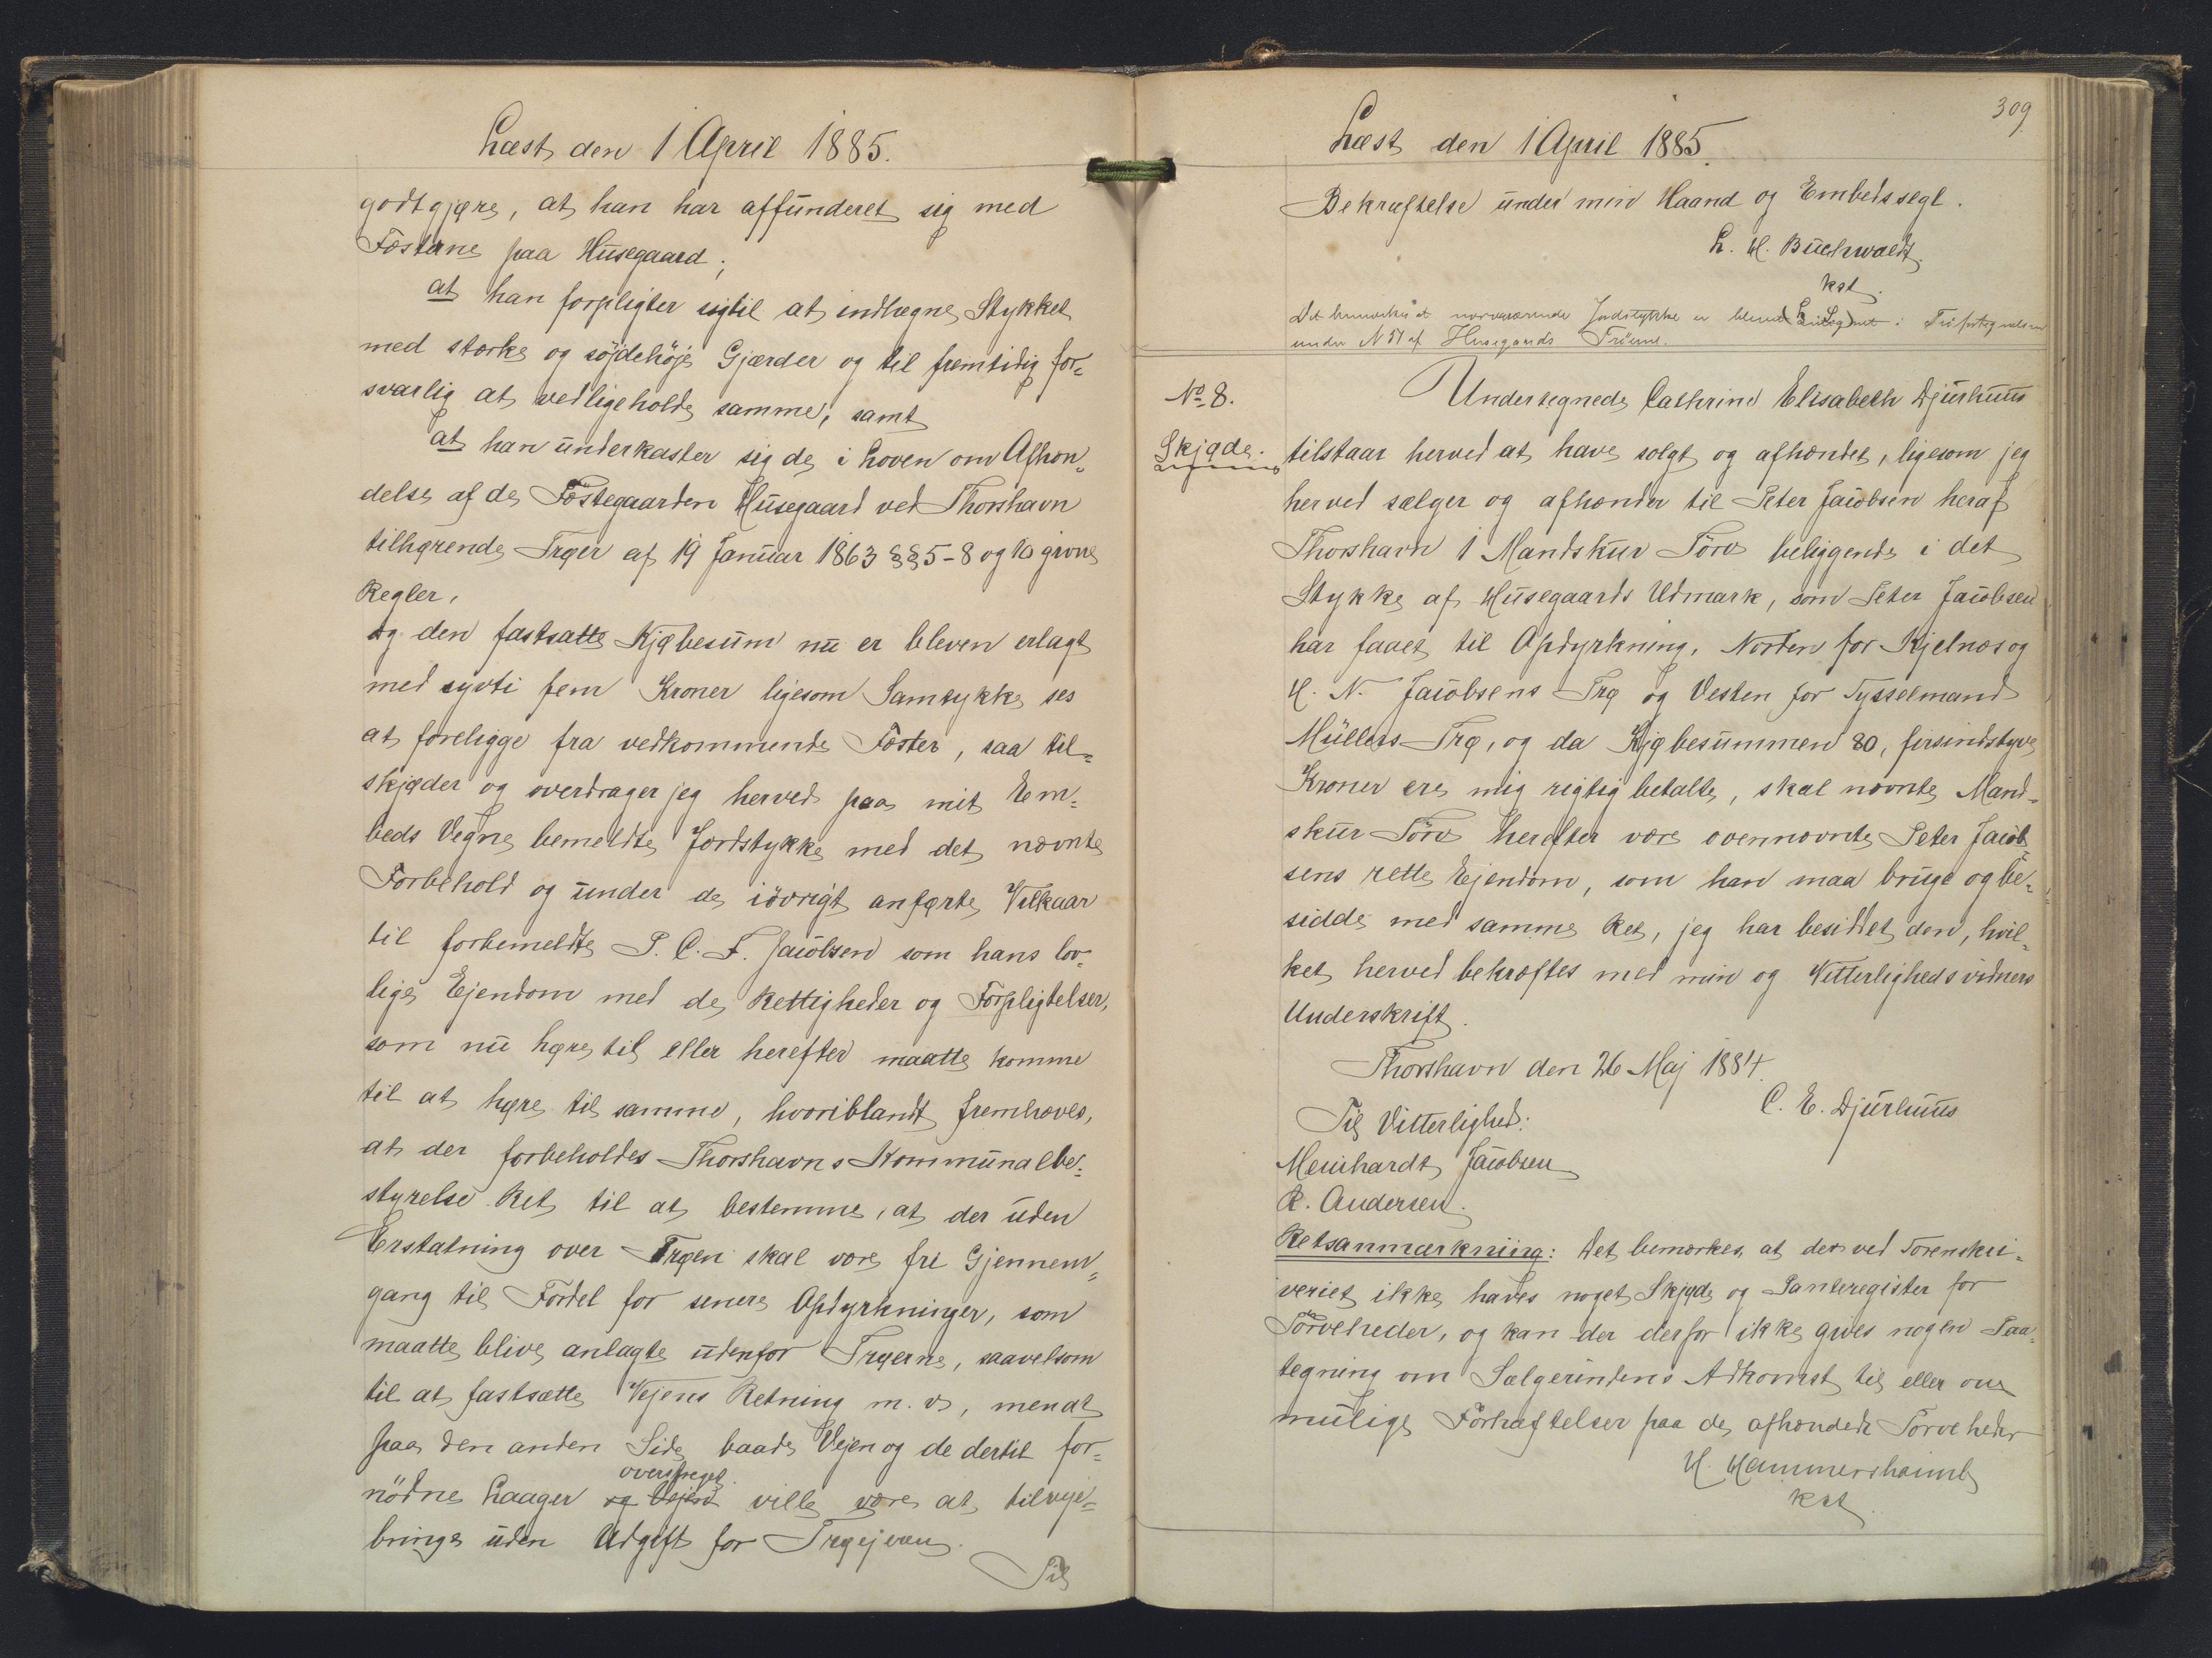 Læst den 1 April 1885.
godtgjøre, at han har affunderet sig med
Fæsterne paa Husegaard;
at han forpligter sig til at indhegne Stykket
med stærke og söjdehöje Gjærder og til fremtidig for=
svarlig at vedligeholde samme; samt
at han underkaster sig de i Loven om Afhæn=
delse af de Fæstegaarden Husegaard ved Thorshavn
tilhørende Trøer af 19 Januar 1863 §§ 5-8 og 10 givne
Regler,
og den fastsatte Kjøbesum nu er bleven erlagt
med syvti fem Kroner ligesom Samtykke ses
at foreligge fra vedkommende Fæster, saa til=
skjøder og overdrager jeg herved paa mit Em=
beds Vegne bemeldte Jordstykke med det nævnte
Forbehold og under de iövrigt anførte Vilkaar
til forbemeldte P. C. F. Jacobsen som hans lov=
lige Ejendom med de Rettigheder og Forpligtelser,
som nu høre til eller herefter maatte komme
til at høre til samme, hvoriblandt fremhæves,
at der forbeholdes Thorshavns Kommunalbe=
styrelse Ret til at bestemme, at der uden
Erstatning over Trøen skal være fri Gjennem=
gang til Fordel for senere Opdyrkninger, som
maatte blive anlagte udenfor Trøerne, saavelsom
til at fastsætte Vejens Retning m. v., men at
paa den anden Side baade Vejen og de dertil for=
overstreget
nödne Laager og Vejen ville være at tilveje=
bringe uden Udgift for Trøejeren.
Til
309
Læst den 1 April 1885.
Bekræftelse under min Haand og Embedssegl.
L. H. Buchwaldt.
kst.
(L. S.)
Det bemærkes at nærværende Jordstykke er blevet i Tröfortegnelsen
under N 51 af Husegaards Tröerne.
No 8.
Skjøde.
Undertegnede Cathrine Elisabeth Djurhuus
tilstaar herved at have solgt og afhændet, ligesom jeg
herved sælger og afhænder til Peter Jacobsen heraf
Thorshavn 1 Mandskur Törv beliggende i det
Stykke af Husegaards Udmark, som Peter Jacobsen
har faaet til Opdyrkning, Norden for Kjelnæs og
H. N. Jacobsens Trø og Vesten for Sysselmand
Müllers Trø, og da Kjøbesummen 80, firsindstyve
Kroner ere mig rigtig betalte, skal nævnte Mand=
skur Törv herefter være ovennævnte Peter Jacob
sens rette Ejendom, som han maa bruge og be=
sidde med samme Ret, jeg har besiddet den, hvil=
ket herved bekræftes med min og Vitterlighedsvidners
Underskrift.
Thorshavn den 26 Maj 1884.
C. E. Djurhuus
Til Vitterlighed:
Meinhardt Jacobsen
R. Andersen.
Retsanmærkning: Det bemærkes, at der ved Sorenskri=
veriet ikke haves noget Skjøde og Panteregister for
Törveheder, og kan der derfor ikke gives nogen Paa=
tegning om Sælgerindens Adkomst til eller om
mulige Forhæftelser paa de afhændede Törveheder
H. Hammershaimb
kst